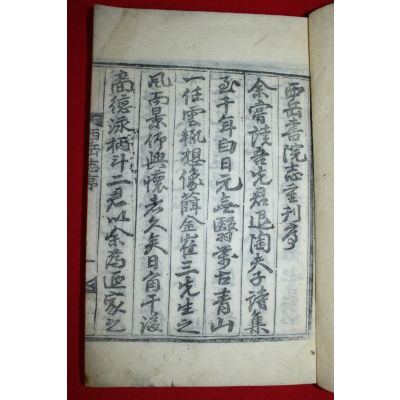 西岳書院志重刊序
余嘗讀吾先君退陶夫子詩集
至千年白日元無翳萬古青山
一任雲輒想像薛金崔三先生之
風而景仰興懷者久矣日崔干
啇德泳柄斗二君以余為
西岳志序